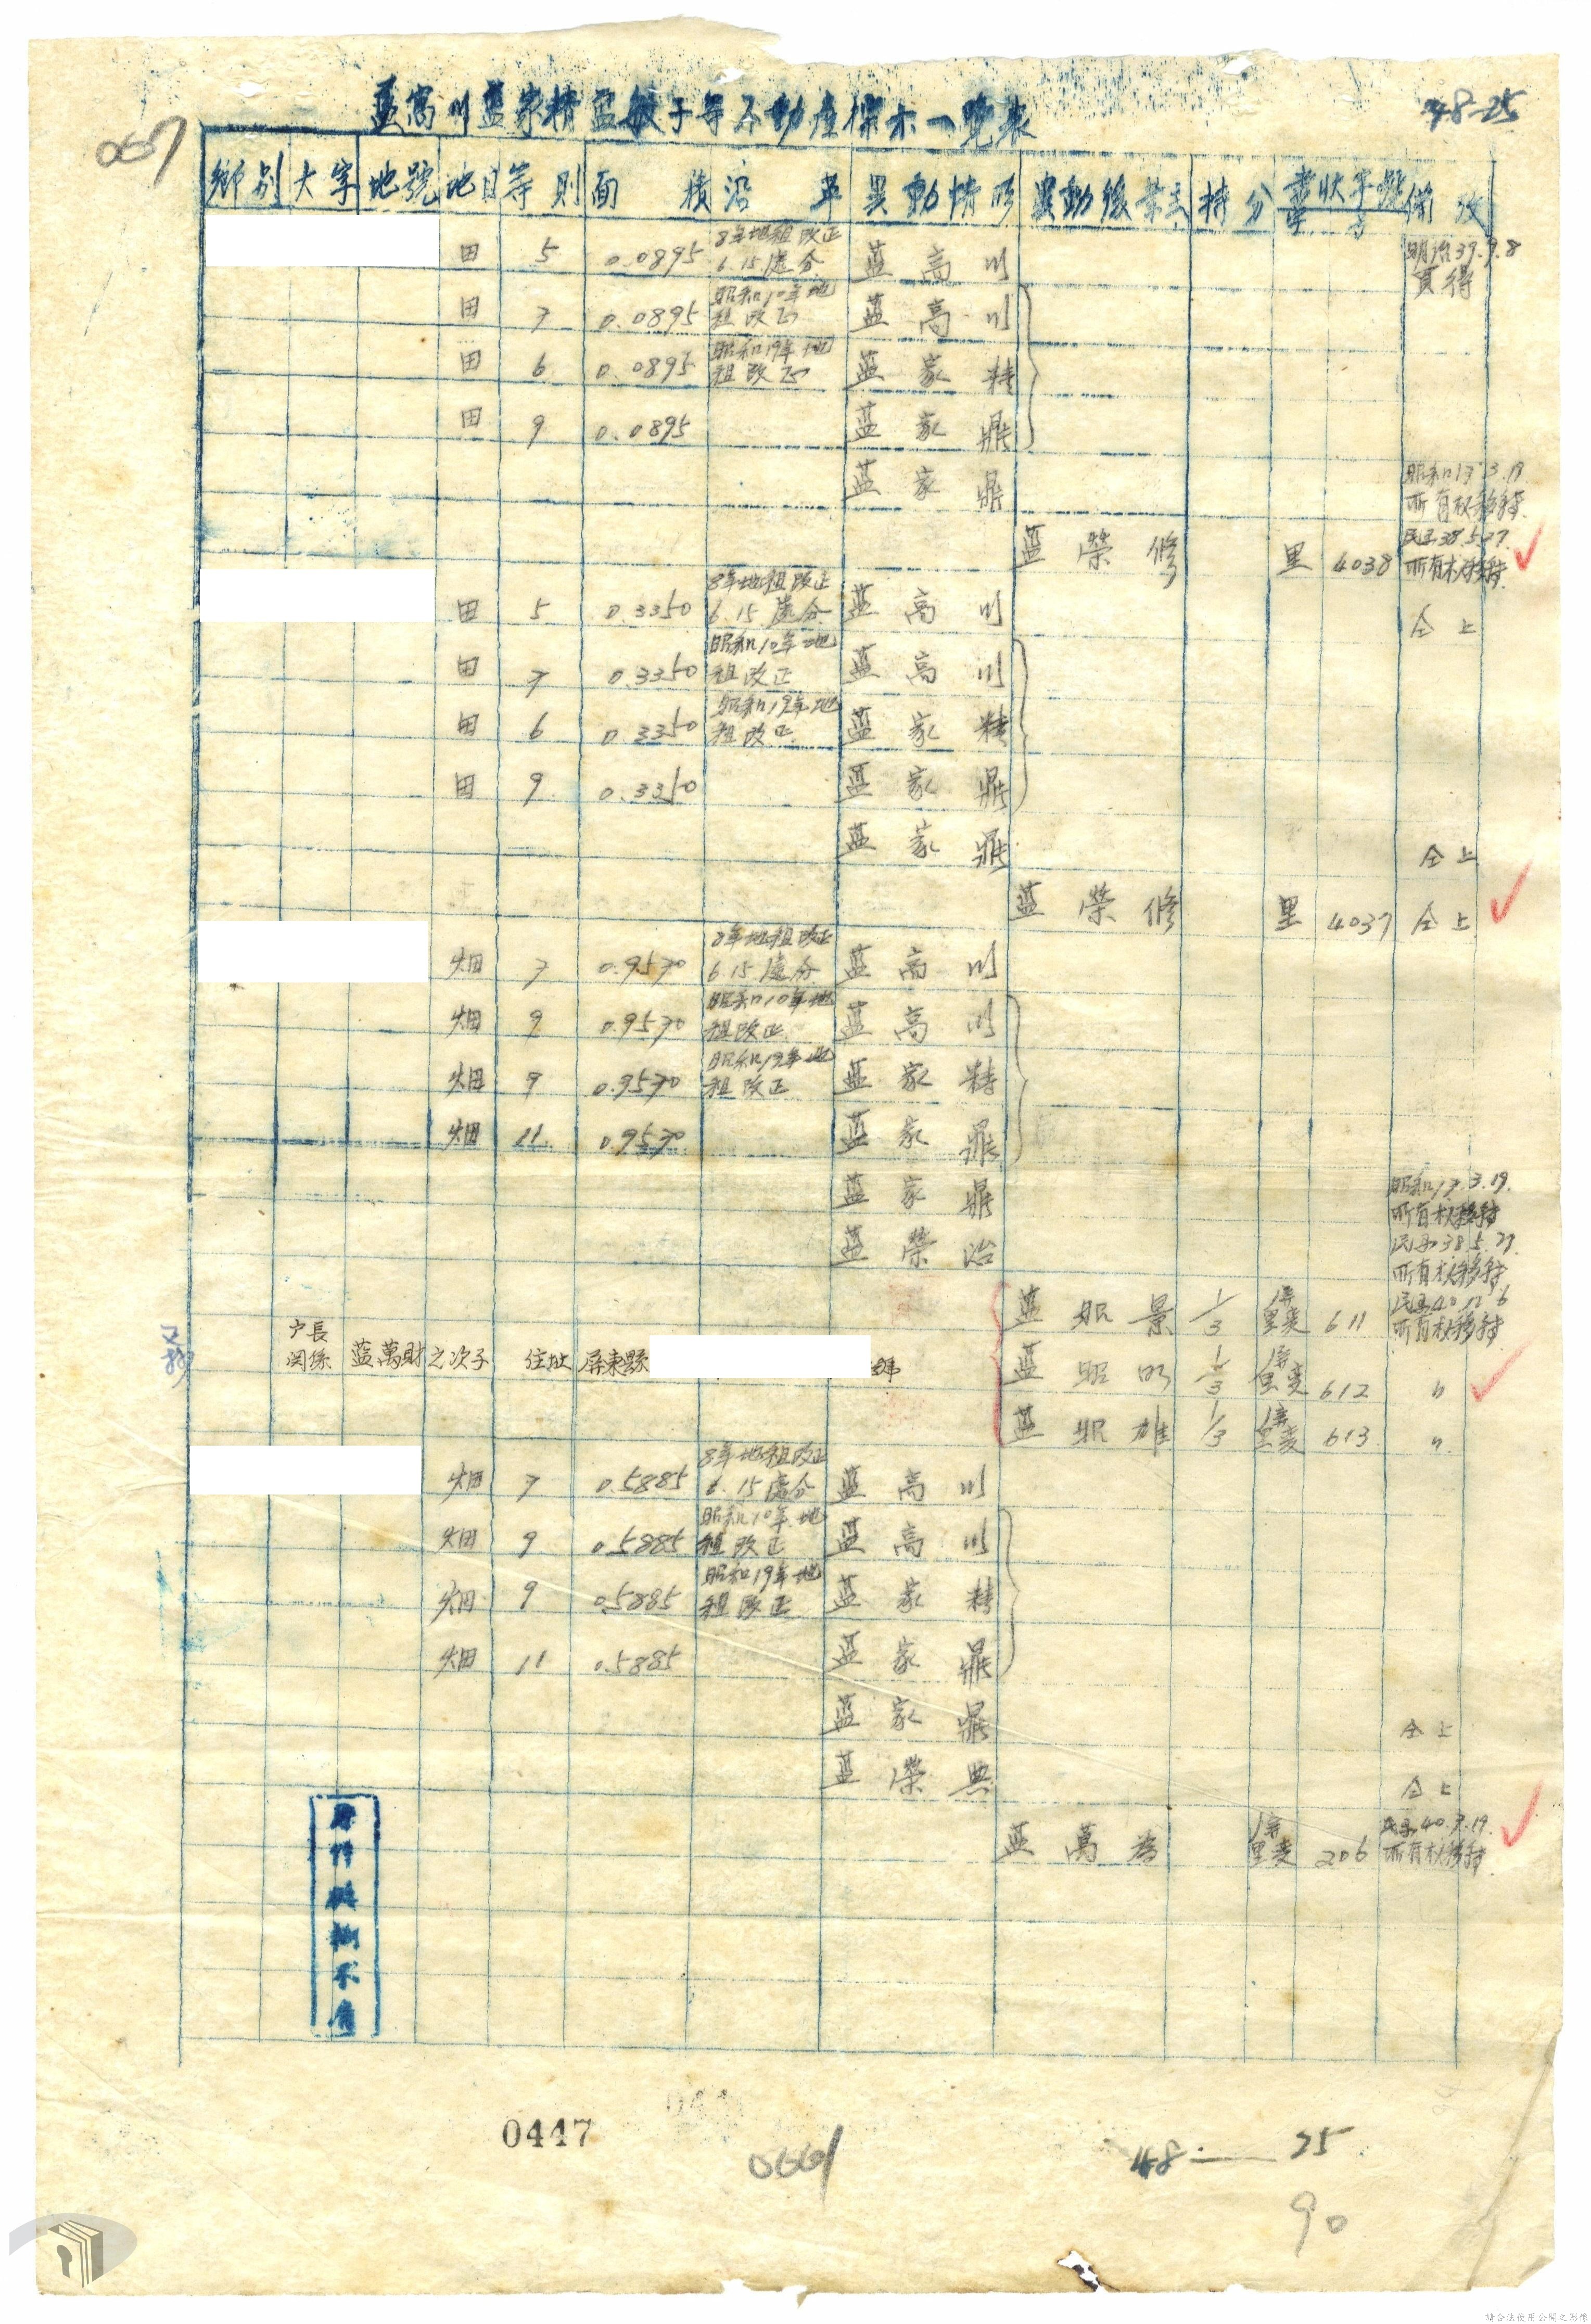 藍高川藍家精藍敏子等不動產標示一覽表
48-25
067
鄉別 大字 地號 地目 等則 面積 沿革 異動情形 異動後業主 持分 書狀字號 備攷
田 5 0.0895 8年地租改正6.15處分 藍高川 明治39.9.8買得
田 7 0.0895 昭和10年地租改正 藍高川
田 6 0.0895 昭和19年地租改正 藍家精
田 9 0.0895 藍家鼎
藍家鼎 昭和17.3.19所有权移轉
藍榮修 里 4038 民国38.5.27所有权移轉
田 5 0.3350 8年地租改正6.15處分 藍高川 仝上
田 7 0.3350 昭和10年地租改正 藍高川
田 6 0.3350 昭和19年地租改正 藍家精
田 9 0.3350 藍家鼎
藍家鼎 仝上
藍榮修 里 4037 仝上
畑 7 0.9570 8年地租改正6.15處分 藍高川
畑 9 0.9570 昭和10年地租改正 藍高川
畑 9 0.9570 昭和19年地租改正 藍家精
畑 11 0.9570 藍家鼎
藍家鼎 昭和17.3.19.所有权移轉
藍榮治 民国38.5.27.所有权移轉
藍昭景 1/3 里변 611 民国40.12.6所有权移轉
户長関係 藍萬財之次子 住址 屏東縣 號
藍昭明 1/3 612 〃
藍昭雄 1/3 613 〃
畑 7 0.5885 8年地租改正6.15處分 藍高川
畑 9 0.5885 昭和10年地租改正 藍高川
畑 9 0.5885 昭和19年地租改正 藍家精
畑 11 0.5885 藍家鼎
藍家鼎 仝上
藍榮典 仝上
藍萬為 206 民国40.7.19.所有权移轉
0447
0661
48—25
90
請合法使用公開之影像